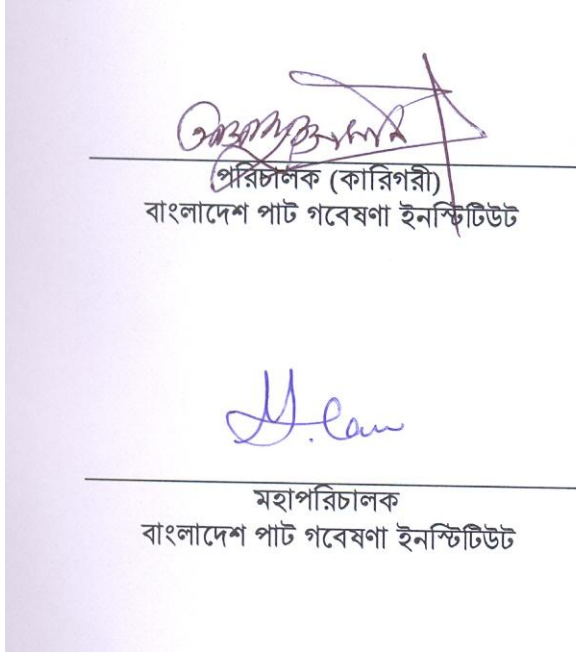 পরিচালক (কারিগরী)
বাংলাদেশ পাট গবেষণা ইনস্টিটিউট
মহাপরিচালক
বাংলাদেশ পাট গবেষণা ইনস্টিটিউট